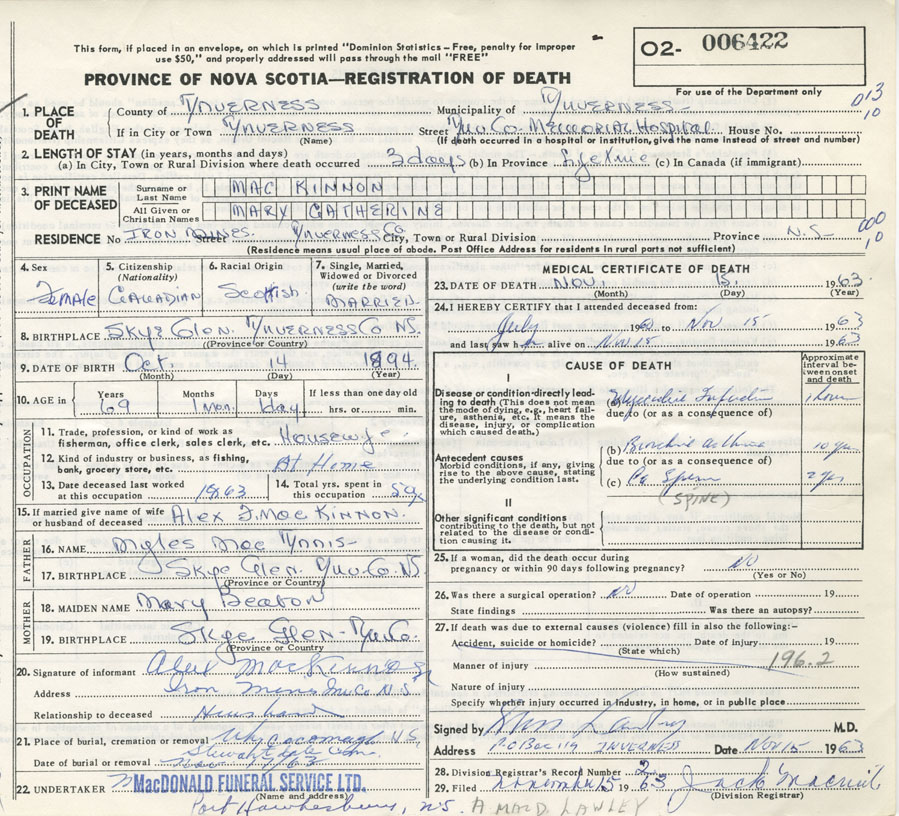 This form, if placed in an envelope, on which is printed "Dominion Statistics—Free, penalty for improper
use $50," and properly addressed will pass through the mail "FREE"
O2- 006422
PROVINCE OF NOVA SCOTIA—REGISTRATION OF DEATH
For use of the Department only
013
10
1. PLACE OF DEATH
County of INVERNESS Municipality of INVERNESS
If in City or Town INVERNESS Street Inv. Co. Memorial Hospital House No.
(Name) (If death occurred in a hospital or institution, give the name instead of street and number)
2. LENGTH OF STAY (in years, months and days)
(a) In City, Town or Rural Division where death occurred 3 days (b) In Province Lifetime (c) In Canada (if immigrant)
3. PRINT NAME OF DECEASED
Surname or Last Name MAC KINNON
All Given or Christian Names MARY CATHERINE
000
10
RESIDENCE No IRON MINES Street INVERNESS Co City, Town or Rural Division Province N.S.
(Residence means usual place of abode. Post Office Address for residents in rural parts not sufficient)
4. Sex
Female
5. Citizenship
(Nationality)
Canadian
6. Racial Origin
Scottish
7. Single, Married, Widowed or Divorced
(write the word)
MARRIED
8. BIRTHPLACE Skye Glen. Inverness Co NS.
(Province or Country)
9. DATE OF BIRTH Oct. 14 1894
(Month) (Day) (Year)
10. AGE in Years Months Days If less than one day old
69 1 mon. 1 day hrs. or min.
OCCUPATION
11. Trade, profession, or kind of work as
fisherman, office clerk, sales clerk, etc. Housewife
12. Kind of industry or business, as fishing,
bank, grocery store, etc. At Home
13. Date deceased last worked
at this occupation 1963
14. Total yrs. spent in
this occupation
15. If married give name of wife
or husband of deceased Alex J. MacKinnon.
FATHER
16. NAME Myles MacInnis
17. BIRTHPLACE Skye Glen. Inv. Co. NS
(Province or Country)
MOTHER
18. MAIDEN NAME Mary Beaton
19. BIRTHPLACE Skye Glen - Inv. Co.
(Province or Country)
20. Signature of informant MacKinnon
Address Iron Mines Inv Co N.S.
Relationship to deceased Husband
21. Place of burial, cremation or removal Whycocomagh N.S,
Date of burial or removal
22. UNDERTAKER MacDONALD FUNERAL SERVICE LTD.
(Name and address)
Port Hawkesbury, N.S.
MEDICAL CERTIFICATE OF DEATH
23. DATE OF DEATH Nov. 15, 1963
(Month) (Day) (Year)
24. I HEREBY CERTIFY that I attended deceased from:
July to Nov 15 1963
and last saw h alive on Nov 15 1963
CAUSE OF DEATH
Approximate interval between onset and death
I
Disease or condition directly leading to death (This does not mean the mode of dying, e.g., heart failure, asthenia, etc. It means the disease, injury, or complication which caused death.)
Infarction 1 hour
due to (or as a consequence of)
Antecedent causes
Morbid conditions, if any, giving rise to the above cause, stating the underlying condition last.
(b) Bronchial asthma 10 yrs
due to (or as a consequence of)
(c) Ca Spine 2 yrs
(SPINE)
II
Other significant conditions
contributing to the death, but not related to the disease or condition causing it.
25. If a woman, did the death occur during
pregnancy or within 90 days following pregnancy? NO
(Yes or No)
26. Was there a surgical operation? NO Date of operation 19
State findings Was there an autopsy?
27. If death was due to external causes (violence) fill in also the following:-
Accident, suicide or homicide? Date of injury 19
(State which)
196.2
Manner of injury
(How sustained)
Nature of injury
Specify whether injury occurred in industry, in home, or in public place
Signed by M.D.
Address P.O Box 119 INVERNESS Date Nov 15 1963
28. Division Registrar's Record Number
29. Filed November 15 1963
(Division Registrar)